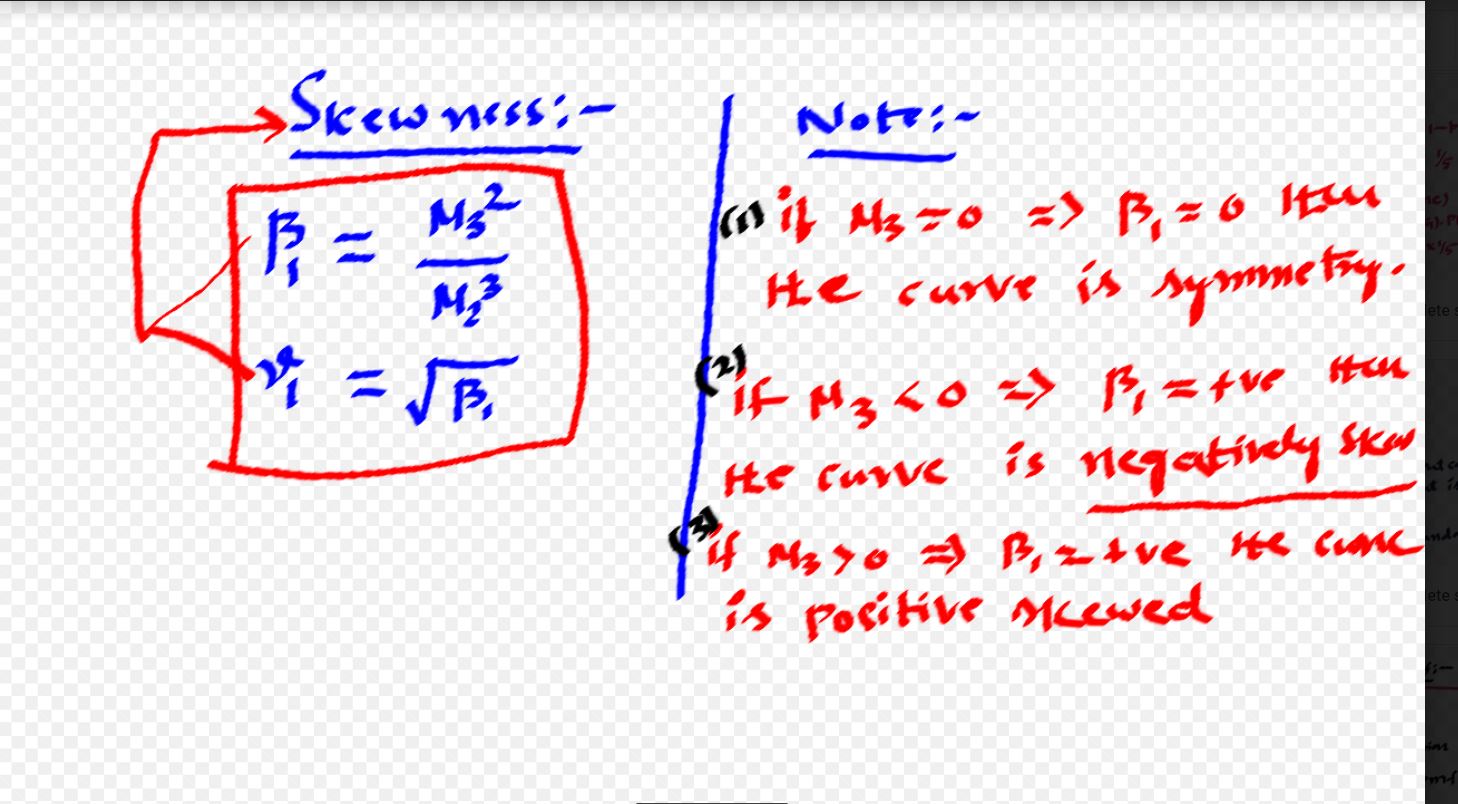 Skewness:-
β₁ = M₃² / M₂³
γ₁ = √β₁
Note:-
(1) if M₃ = 0 => β₁ = 0 then
the curve is symmetry.
(2) if M₃ < 0 => β₁ = +ve then
the curve is negatively skew
(3) if M₃ > 0 => β₁ = +ve the curve
is positive skewed